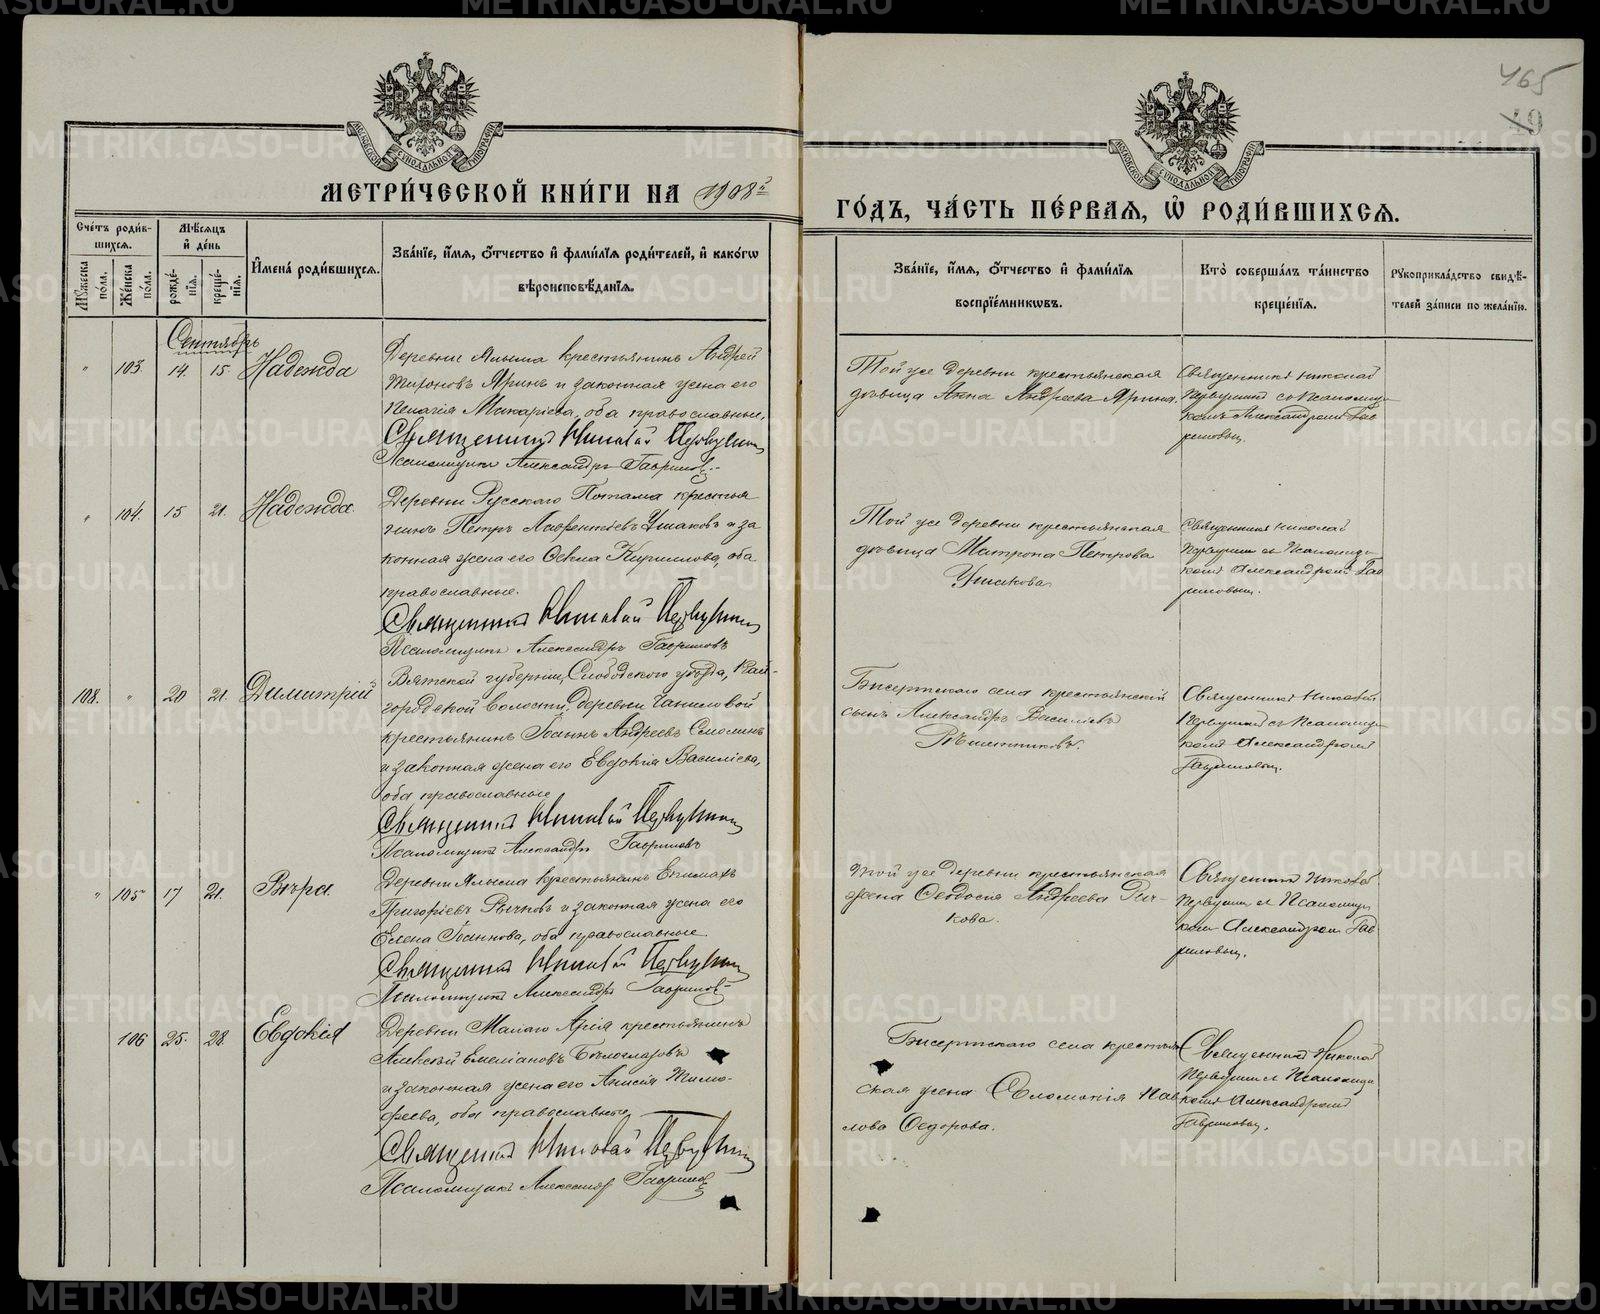 465
49
МОСКОВСКОЙ СѴНОДАЛЬНОЙ ТИПОГРАФІИ
МОСКОВСКОЙ СѴНОДАЛЬНОЙ ТИПОГРАФІИ
МЕТРИ́ЧЕСКОЙ КНИ́ГИ НА 1908й
ГО́ДЪ, ЧА́СТЬ ПЕ́РВАЯ, Ѽ РОДИ́ВШИХСЯ.
Сче́тъ роди́в-
шихся.
Мꙋжеска по́ла.
Же́нска по́ла.
Мѣ́сяцъ и҆ де́нь
рожде́нїя.
креще́нїя.
И҆мена̀ роди́вшихся.
Зва́нїе, и҆́мя, ѻ҆́тчество и҆ фами́лїя роди́телей, и҆ како́гѡ
вѣроисповѣ́данїя.
Зва́нїе, и҆́мя, ѻ҆́тчество и҆ фами́лїя
воспрїе́мникѡвъ.
Кто̀ соверша́лъ та́инство
креще́нїя.
Рꙋкоприкла́дство свидѣ́-
телей за́писи по жела́нїю.
Сентябрь
" 103. 14. 15. Надежда
Деревни Ялыма крестьянинъ Андрей
Тихоновъ Яринъ и законная жена его
Пелагія Макаріева, оба православные.
Священникъ Николай Первушинъ
Псаломщикъ Александръ Гавриловъ
Той же деревни крестьянская
дѣвица Анна Андреева Ярина.
Священникъ Николай
Первушинъ съ Псаломщи-
комъ Александромъ Гав
риловым.
" 104. 15 21. Надежда.
Деревни Русскаго Потама крестья
нинъ Петръ Лаврентіевъ Ушаковъ и за
конная жена его Ѳекла Кириллова, оба
православные.
Священникъ Николай Первушинъ
Псаломщикъ Александръ Гавриловъ
Той же деревни крестьянская
дѣвица Матрона Петрова
Ушакова
Священникъ Николай
Первушин съ Псаломщи-
комъ Александромъ Гав
риловым.
108. " 20 21. Димитрій
Вятской губерніи, Слободского уѣзда, Кай-
городской волости, деревни
крестьянинъ Іоаннъ Андреевъ Смолинъ
и законная жена его Евдокія Василіева,
оба православные
Священникъ Николай Первушинъ
Псаломщикъ Александръ Гавриловъ
Бисертскаго села крестьянскій
сынъ Александръ Василіевъ
Рѣшетниковъ.
Священникъ Николай
Первушинъ съ Псаломщи-
комъ Александромъ
Гавриловым.
" 105 17 21. Вѣра
Деревни Ялыма крестьянинъ Епимахъ
Григоріевъ Рычковъ и законная жена его
Елена Іоаннова, оба православные
Священникъ Николай Первушинъ
Псаломщикъ Александръ Гавриловъ
Той же деревни крестьянская
жена Ѳеодосія Андреева Рыч-
кова.
Священникъ Николай
Первушин съ Псаломщи
комъ Александром Гав
риловым.
106 25. 28. Евдокія
Деревни Малаго Арія крестьянинъ
Алексѣй Емеліановъ Бѣлоглазовъ
и законная жена его Анисія Тимо-
феева, оба православные
Священникъ Николай Первушинъ
Псаломщикъ Александръ Гавриловъ
Бисертскаго села крестьян
ская жена Соломонія Пав
лова Ѳедорова.
Священникъ Николай
Первушин съ Псаломщи
комъ Александромъ
Гавриловым.
METRIKI.GASO-URAL.RU